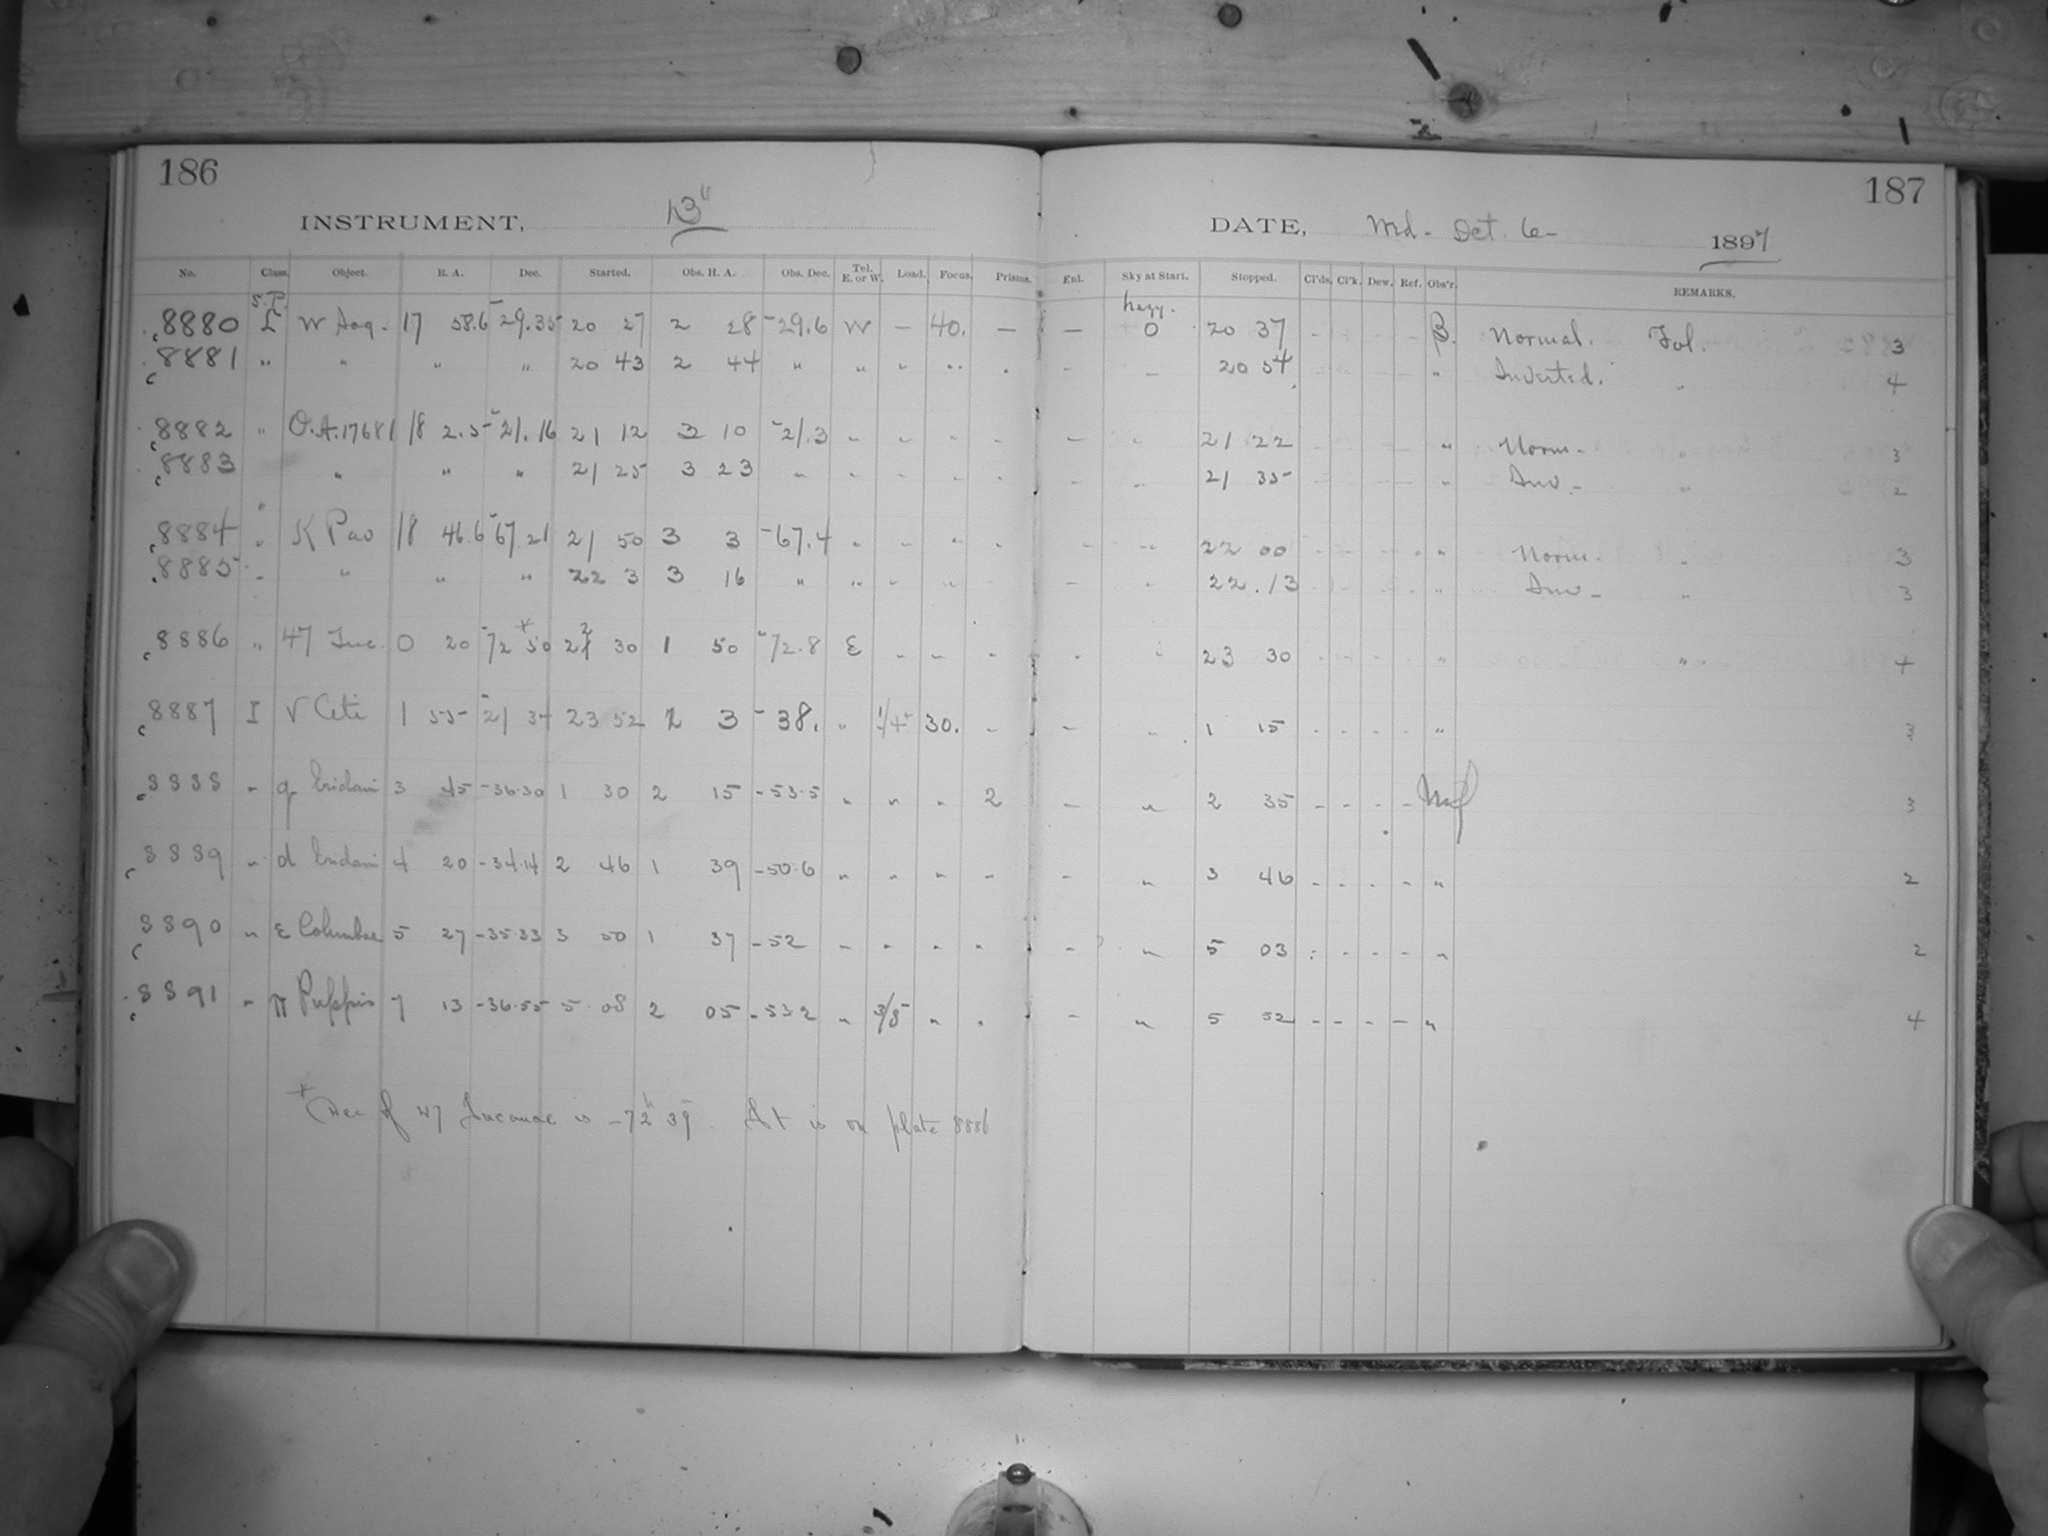 186
187
INSTRUMENT, 13"
DATE, Wed- Oct. 6- 1897
No. Class. Object. R. A. Dec. Started. Obs. H. A. Obs. Dec. Tel. E. or W. Load. Focus. Prisms. Enl. Sky at Start. Stopped. Cl'ds. Cl'k. Dew. Ref. Obs'r. REMARKS.
8880 S.P. L W Sag. 17 58.6 -29.35 20 27 2 28 -29.6 W - 40. - - hazy. 0 20 37 - - - - B. Normal. Fol. 3
8881 " " " " 20 43 2 44 " " - " . - - 20 54 " Inverted. " 4
8882 " O.A.17681 18 2.5 -21.16 21 12 3 10 -21.3 - - - - - - 21 22 " Norm- " 3
8883 " " " 21 25 3 23 - - - - - - - 21 35 " Inv- " 2
8884 " K Pav 18 46.6 -67.21 21 50 3 3 -67.4 " - - - - - 22 00 - - - - " Norm- " 3
8885 " " " " 22 3 3 16 " " - " - - - 22.13 " Inv- " 3
8886 " 47 Tuc. 0 20 -72 50* 22 30 1 50 -72.8 E - - - - - 23 30 " " 4
8887 I V Ceti 1 55 -21 34 23 52 2 3 -38. " 1/4 30. - - - 1 15 - - - - " 3
8888 " g Eridani 3 45 -36.30 1 30 2 15 -53.5 " " " 2 - " 2 35 - - - - 3
8889 " d Eridani 4 20 -34.14 2 46 1 39 -50.6 " " " - - " 3 46 - - - - " 2
8890 " ε Columbae 5 27 -35.33 3 50 1 37 -52 " " " " - " 5 03 - - - - " 2
8891 " π Puppis 7 13 -36.55 5 08 2 05 -53.2 " 3/8 " " - " 5 52 - - - - " 4
* Dec. of 47 Tucanae is -72° 39'. It is on plate 8886